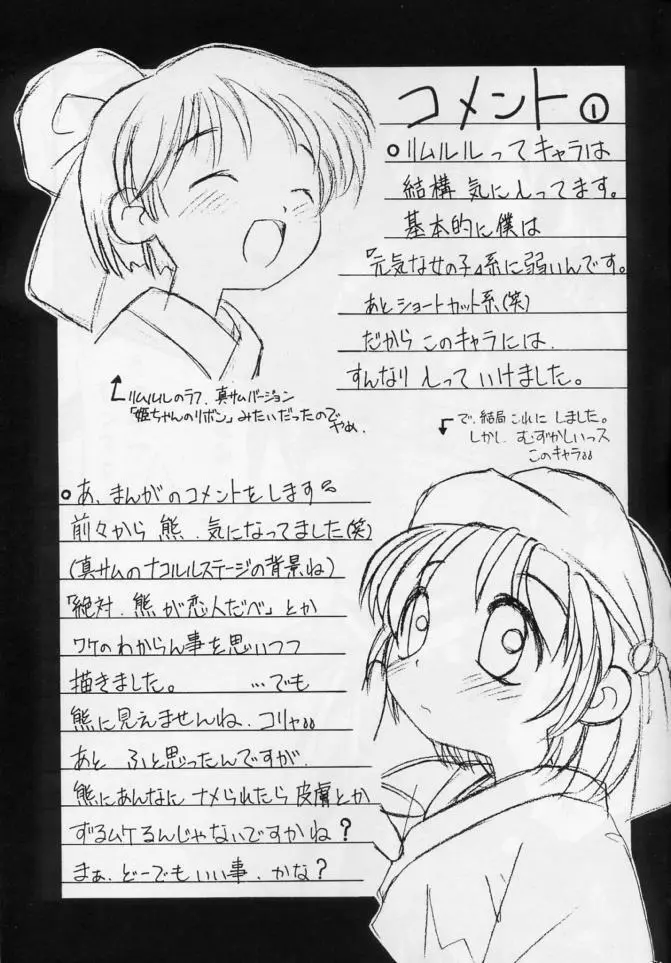 コメント①
○リムルルってキャラは
結構 気に入ってます。
基本的に僕は
『元気な女の子』系に弱いんです。
あとショートカット系(笑)
だから このキャラには、
すんなり 入って いけました。
リムルルのラフ、真サムバージョン
「姫ちゃんのリボン」みたいだったので
やめ.
で、結局 これに しました。
しかし、むずかしいっス
このキャラ。。
○あ、まんがのコメントをします
前々から 熊、気になってました(笑)
(真サムのナコルルステージの背景ね)
「絶対、熊が恋人だべ」とか
ワケのわからん事を思いつつ
描きました。 …でも
熊に見えませんね、コリャ。。
あと ふと思ったんですが、
熊にあんなに ナメられたら 皮膚とか
ずるムケるんじゃないですかね?
まぁ、どーでもいい事、かな?